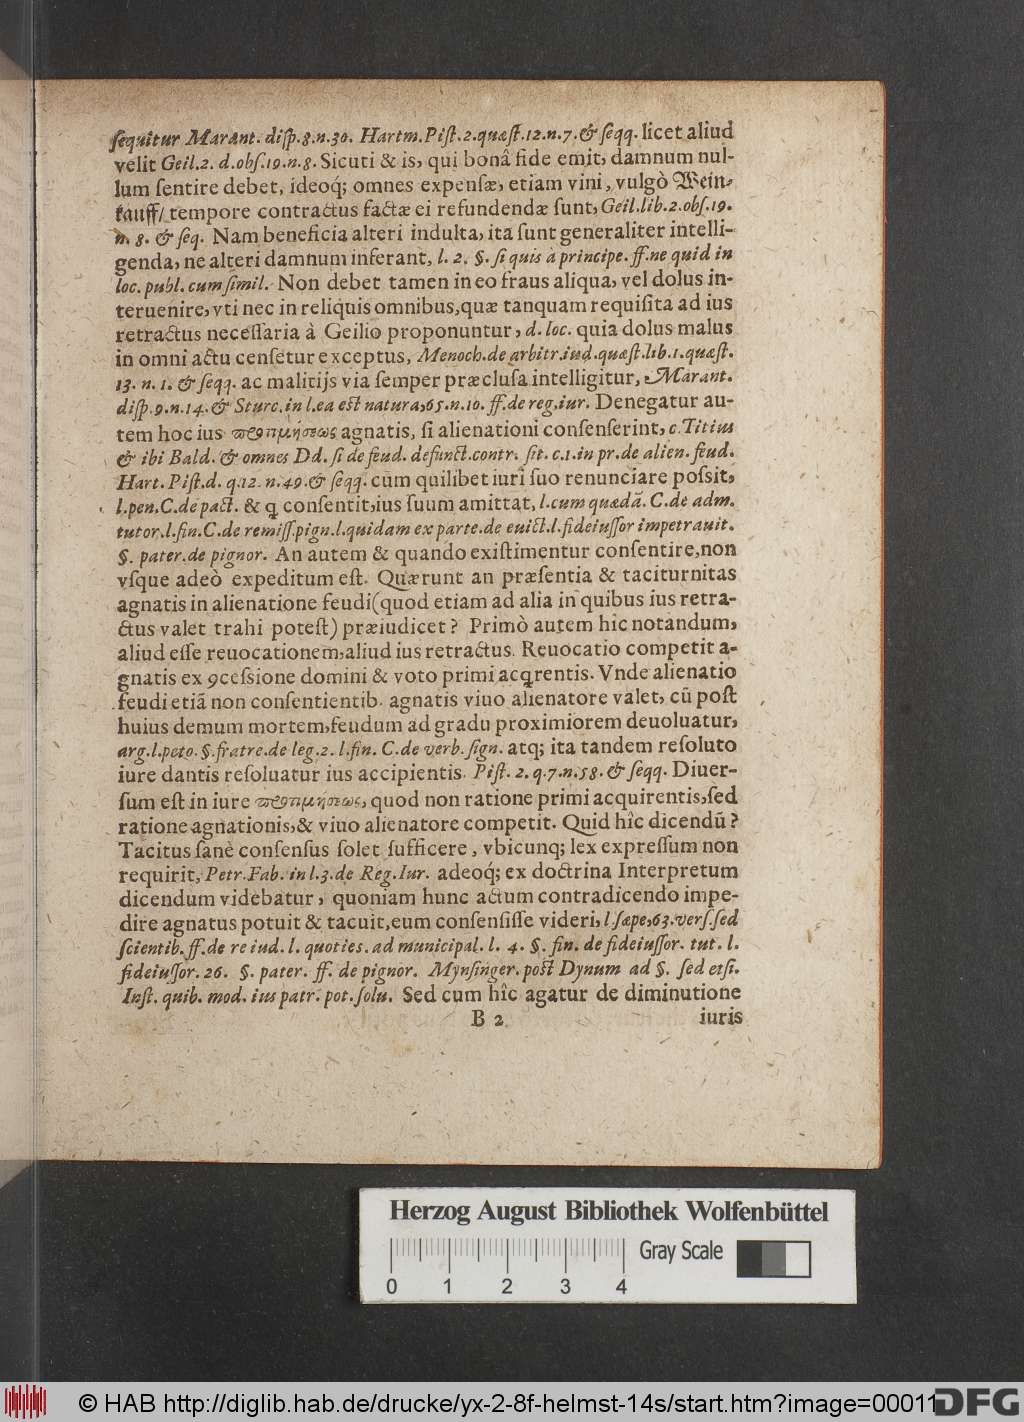 ſequitur Marant. diſp.8.n.30. Hartm.Piſt.2.quæſt.12.n.7.& ſeqq. licet aliud
velit Geil.2. d.obſ.19.n.8. Sicuti & is, qui bonâ fide emit, damnum nul-
lum ſentire debet, ideoq́; omnes expenſæ, etiam vini, vulgò Wein-
kauff/ tempore contractus factæ ei refundendæ ſunt, Geil.lib.2.obſ.19.
n. 8. & ſeq. Nam beneficia alteri indulta, ita ſunt generaliter intelli-
genda, ne alteri damnum inferant, l. 2. §. ſi quis à principe. ff. ne quid in
loc. publ. cum ſimil. Non debet tamen in eo fraus aliqua, vel dolus in-
teruenire, vti nec in reliquis omnibus, quæ tanquam requiſita ad ius
retractus neceſſaria à Geilio proponuntur, d. loc. quia dolus malus
in omni actu cenſetur exceptus, Menoch.de arbitr.iud.quæſt.lib.1.quæſt.
13. n. 1. & ſeqq. ac malitijs via ſemper præcluſa intelligitur, Marant.
diſp.9.n.14.& Sturc.in l.ea eſt natura,65.n.10. ff.de reg.iur. Denegatur au-
tem hoc ius προτιμήσεως agnatis, ſi alienationi conſenſerint, c.Titius
& ibi Bald. & omnes Dd. ſi de feud. defunct.contr. ſit. c.1.in pr.de alien. feud.
Hart. Piſt.d. q.12. n.49.& ſeqq. cùm quilibet iuri ſuo renunciare poſsit,
l.pen.C.de pact. & ꝗ conſentit, ius ſuum amittat, l.cum quædã. C.de adm.
tutor.l.fin.C.de remiſſ.pign.l.quidam ex parte.de euict.l.fideiuſſor impetrauit.
§. pater.de pignor. An autem & quando exiſtimentur conſentire, non
vſque adeò expeditum eſt. Quærunt an præſentia & taciturnitas
agnatis in alienatione feudi (quod etiam ad alia in quibus ius retra-
ctus valet trahi poteſt) præiudicet? Primò autem hic notandum,
aliud eſſe reuocationem, aliud ius retractus. Reuocatio competit a-
gnatis ex ꝯceſsione domini & voto primi acꝗrentis. Vnde alienatio
feudi etiã non conſentientib. agnatis viuo alienatore valet, cũ poſt
huius demum mortem, feudum ad gradu proximiorem deuoluatur,
arg.l.peto. §.fratre.de leg.2. l.fin. C.de verb.ſign. atq; ita tandem reſoluto
iure dantis reſoluatur ius accipientis. Piſt. 2. q.7.n.58.& ſeqq. Diuer-
ſum eſt in iure προτιμήσεως, quod non ratione primi acquirentis, ſed
ratione agnationis, & viuo alienatore competit. Quid hîc dicendũ?
Tacitus ſanè conſenſus ſolet ſufficere, vbicunq; lex expreſſum non
requirit, Petr.Fab. in l.3.de Reg.Iur. adeoq́; ex doctrina Interpretum
dicendum videbatur, quoniam hunc actum contradicendo impe-
dire agnatus potuit & tacuit, eum conſenſiſſe videri, l.ſæpe,63.verſ.ſed
ſcientib. ff.de re iud. l. quoties. ad municipal. l. 4. §. fin. de fideiuſſor. tut. l.
fideiuſſor. 26. §. pater. ff. de pignor. Mynſinger. poſt Dynum ad §. ſed etſi.
Inſt. quib. mod. ius patr. pot. ſolu. Sed cum hîc agatur de diminutione
B 2
iuris
Herzog August Bibliothek Wolfenbüttel
Gray Scale
0 1 2 3 4
© HAB http://diglib.hab.de/drucke/yx-2-8f-helmst-14s/start.htm?image=00011
DFG